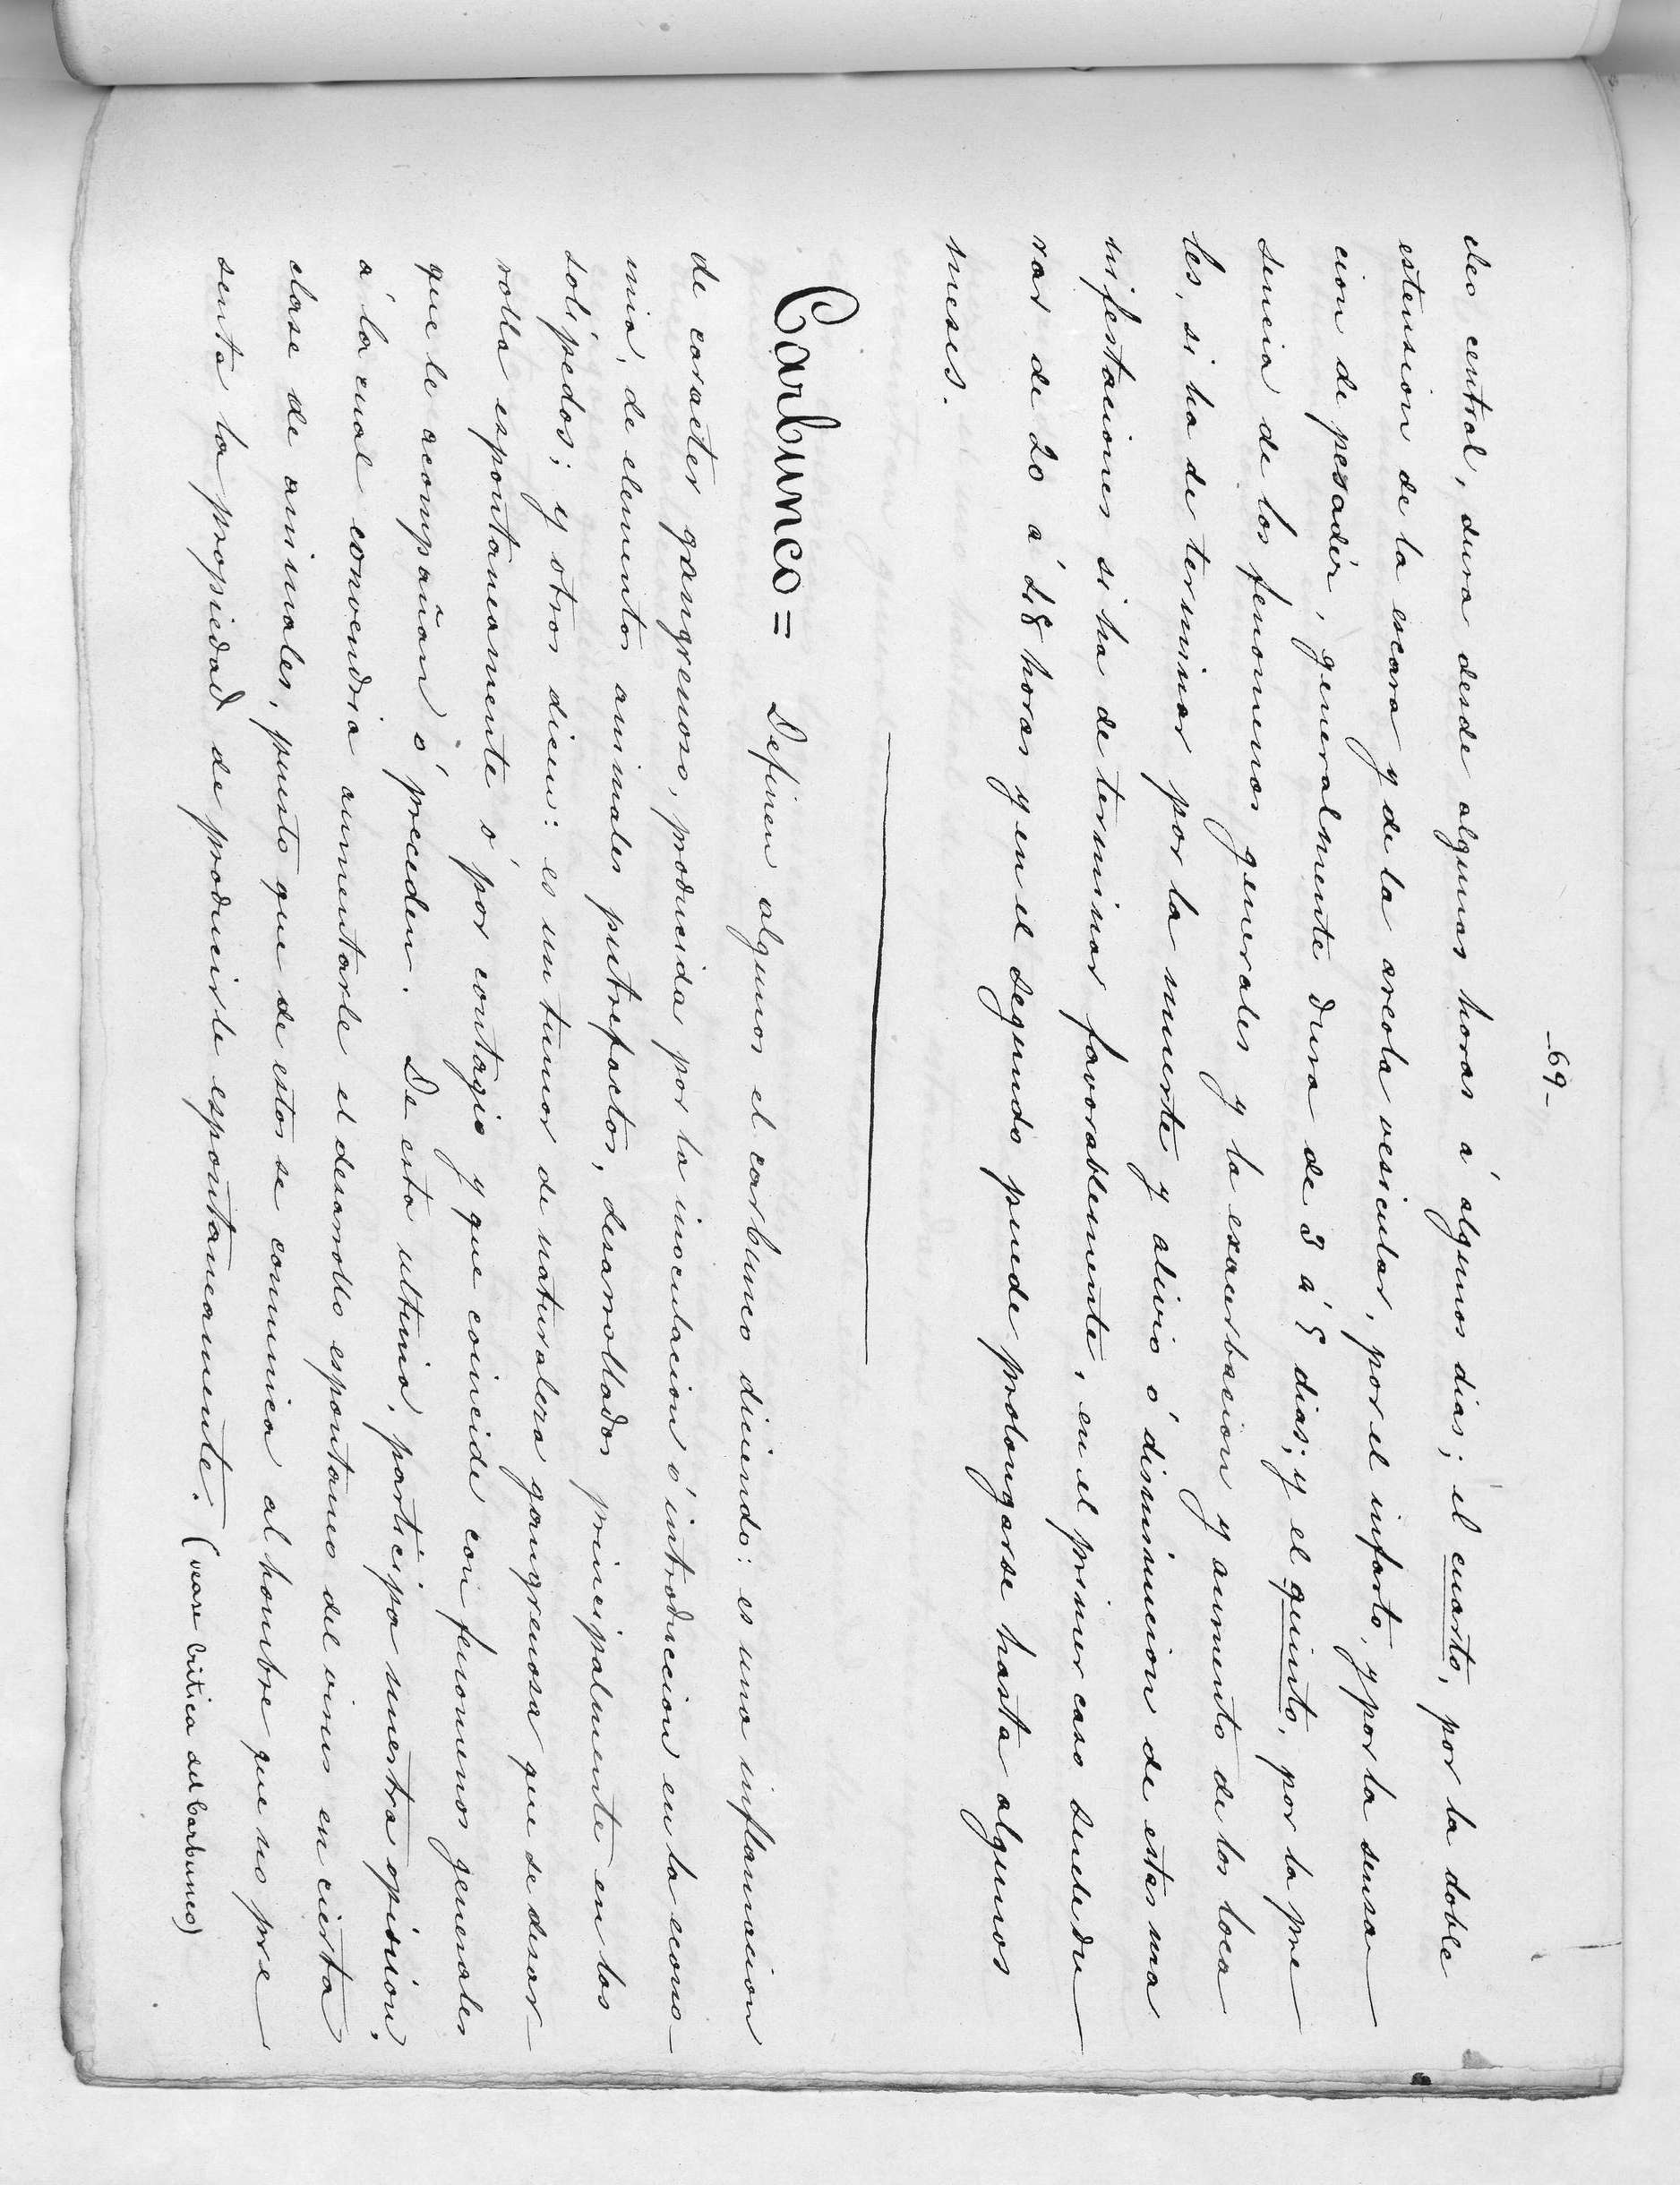 -69-
cleo central, dura desde algunas horas á algunos dias; el cuarto, por la doble
estension de la escara y de la areola vesicular, por el infarto, y por la sensa
cion de pesadér, generalmente dura de 3 á 5 dias; y el quinto, por la pre
sencia de los fenomenos generales y la exacerbacion y aumento de los loca
les, si ha de terminar por la muerte y alivio ó disminucion de estas ma
nifestaciones si ha de terminar favorablemente, en el primer caso suele du
rar de 20 á 48 horas y en el segundo puede prolongarse hasta algunos
meses.
Carbunco= Definen algunos el carbunco diciendo: es una inflamacion
de caracter gangrenoso, producida por la inoculacion ó introduccion en la econo-
mia, de elementos animales putrefactos, desarrollados principalmente en los
solípedos; y otros dicen: es un tumor de naturaleza gangrenosa que se desar-
rolla espontaneamente ó por contagio y que coincide con fenomenos generales
que le acompañan ó preceden. De esta ultima, participa nuestra opinion,
á la cual convendria aumentarle el desarrollo espontaneo del virus en cierta
clase de animales, puesto que de estos se comunica al hombre que no pre
senta la propiedad de producirle espontaneamente. (vease Critica del Carbunco)